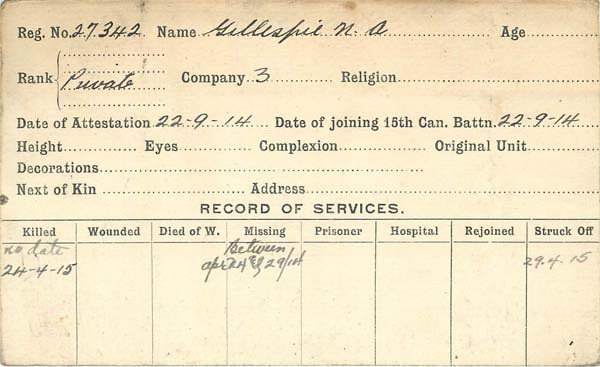 Reg. No. 27342 Name Gillespie N. A Age
Rank Private Company 3 Religion
Date of Attestation 22-9-14 Date of joining 15th Can. Battn. 22-9-14
Height Eyes Complexion Original Unit
Decorations
Next of Kin Address
RECORD OF SERVICES.
Killed Wounded Died of W. Missing Prisoner Hospital Rejoined Struck Off
no date Between
24-4-15 apr 24 29/14 29.4.15